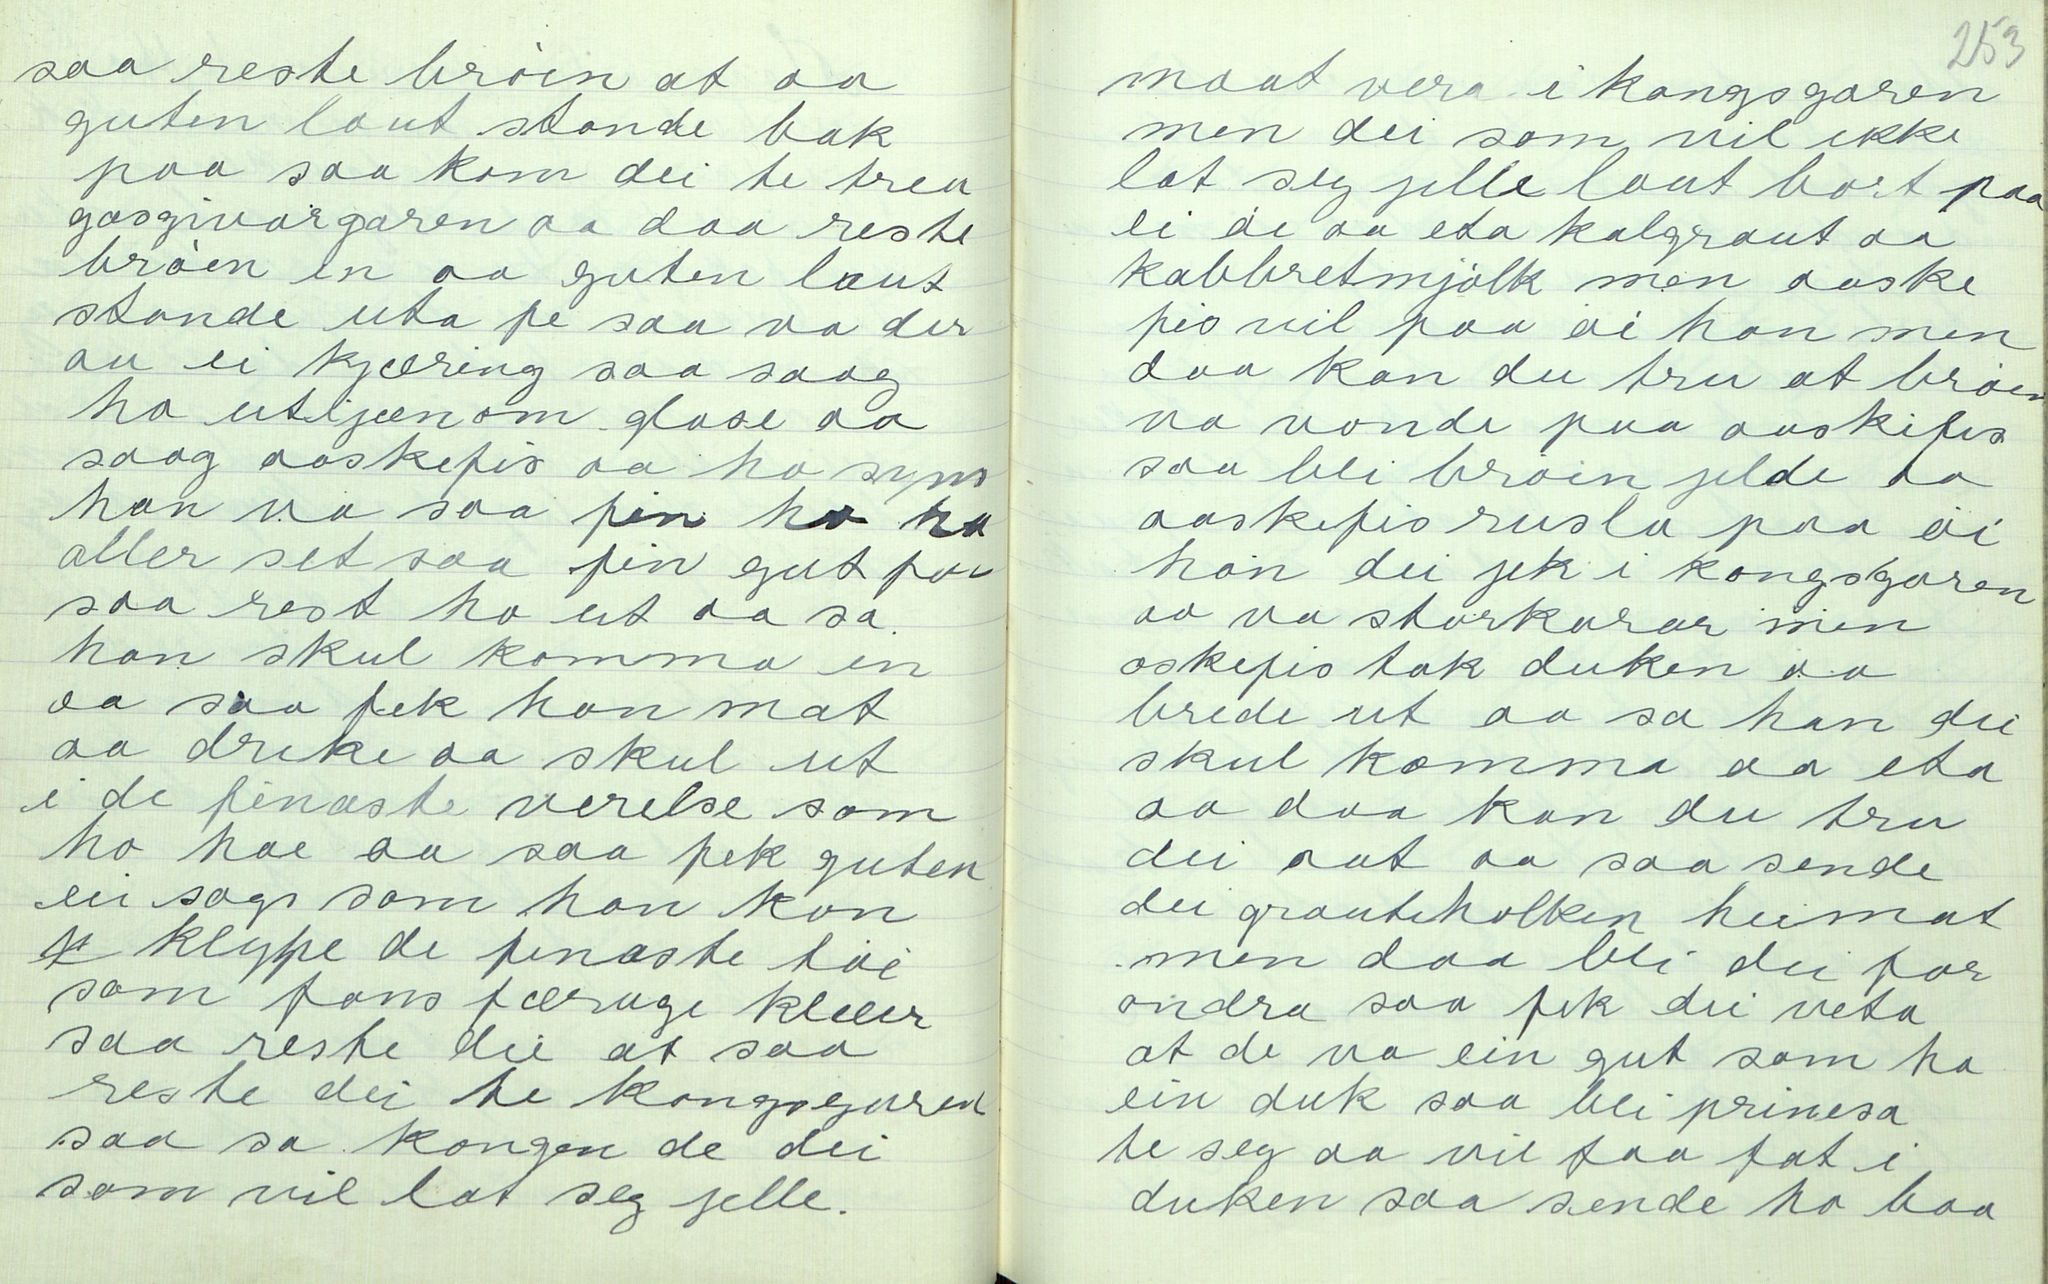 saa reste bròin at aa
guten laut stande bak
paa saa kom dei te trea
gasgivargaren aa daa reste
bròen in aa guten laut
stande uta fe saa va der
au ei kjæring saa saag
ho utijænom glase aa
saag aaskefis aa ho syns
han va saa fin ho ha
aller set saa fin gut før
saa rest ho ut aa sa
han skul komma in
aa saa fek han mat
aa drike aa skul ut
i de finaste værelse som
ho hae aa saa fek guten
ein sags som han kan
klyppe de finaste tòi
som fans færage klæer
saa reste dei at saa
reste dei te kongsgaren
saa sa kongen de dei
som vil lat seg jelle.
253
maat vera i kongsgaren
men dei som vil ikke
lat seg jelle laut bort paa
ei òi aa eta kalgraut aa
kabbretmjølk men aaske
fis vil paa òi han men
daa kan du tru at bròen
va vonde paa aaskefis
saa blei bròin jelde aa
aaskefis rusla paa òi
han dei jek i kongsgaren
aa va storkarar men
oskefis tok duken aa
brede ut aa sa han dei
skul komma aa eta
aa daa kan du tru
dei aat aa saa sende
dei grauteholken heimat
men daa blei dei for
ondra saa fek dei veta
at de va ein gut som ha
ein duk saa blei prinesa
te seg aa vil faa fat i
duken saa sende ho baa